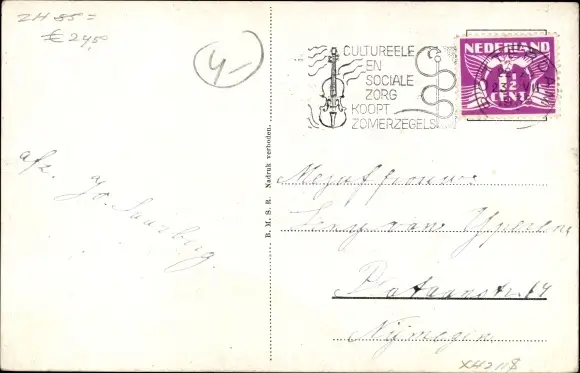 ZH 85=
€ 2,50
4-
CULTUREELE
EN
SOCIALE
ZORG
KOOPT
ZOMERZEGELS
NEDERLAND
1½
CENT
B. M. S. R. Nadruk verboden.
afz. Jo
Mejuffrouw
Leny van Yperen
Plataanstr. 14
Nijmegen
XH2118